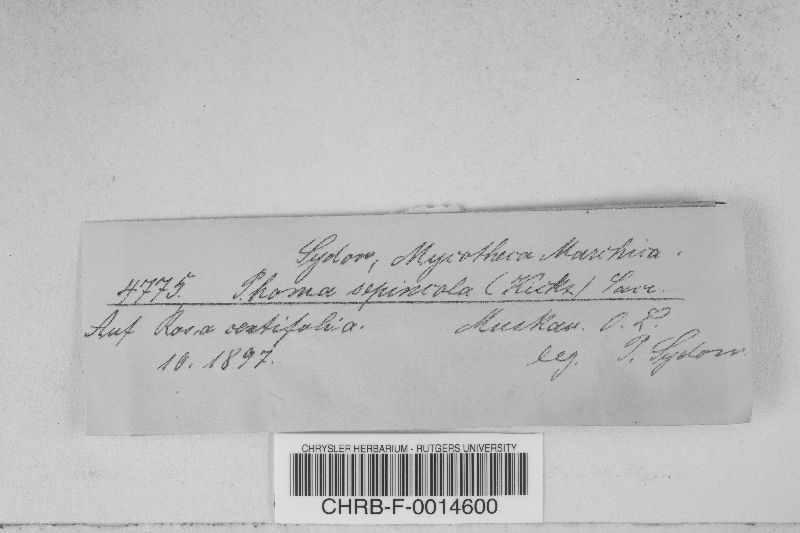 Sydow, Mycotheca Marchica.
4775. Phoma sepincola (Kickx) Sacc.
Auf Rosa centifolia. Muskau. O. L.
10. 1897. leg. P. Sydow
CHRYSLER HERBARIUM - RUTGERS UNIVERSITY
CHRB-F-0014600